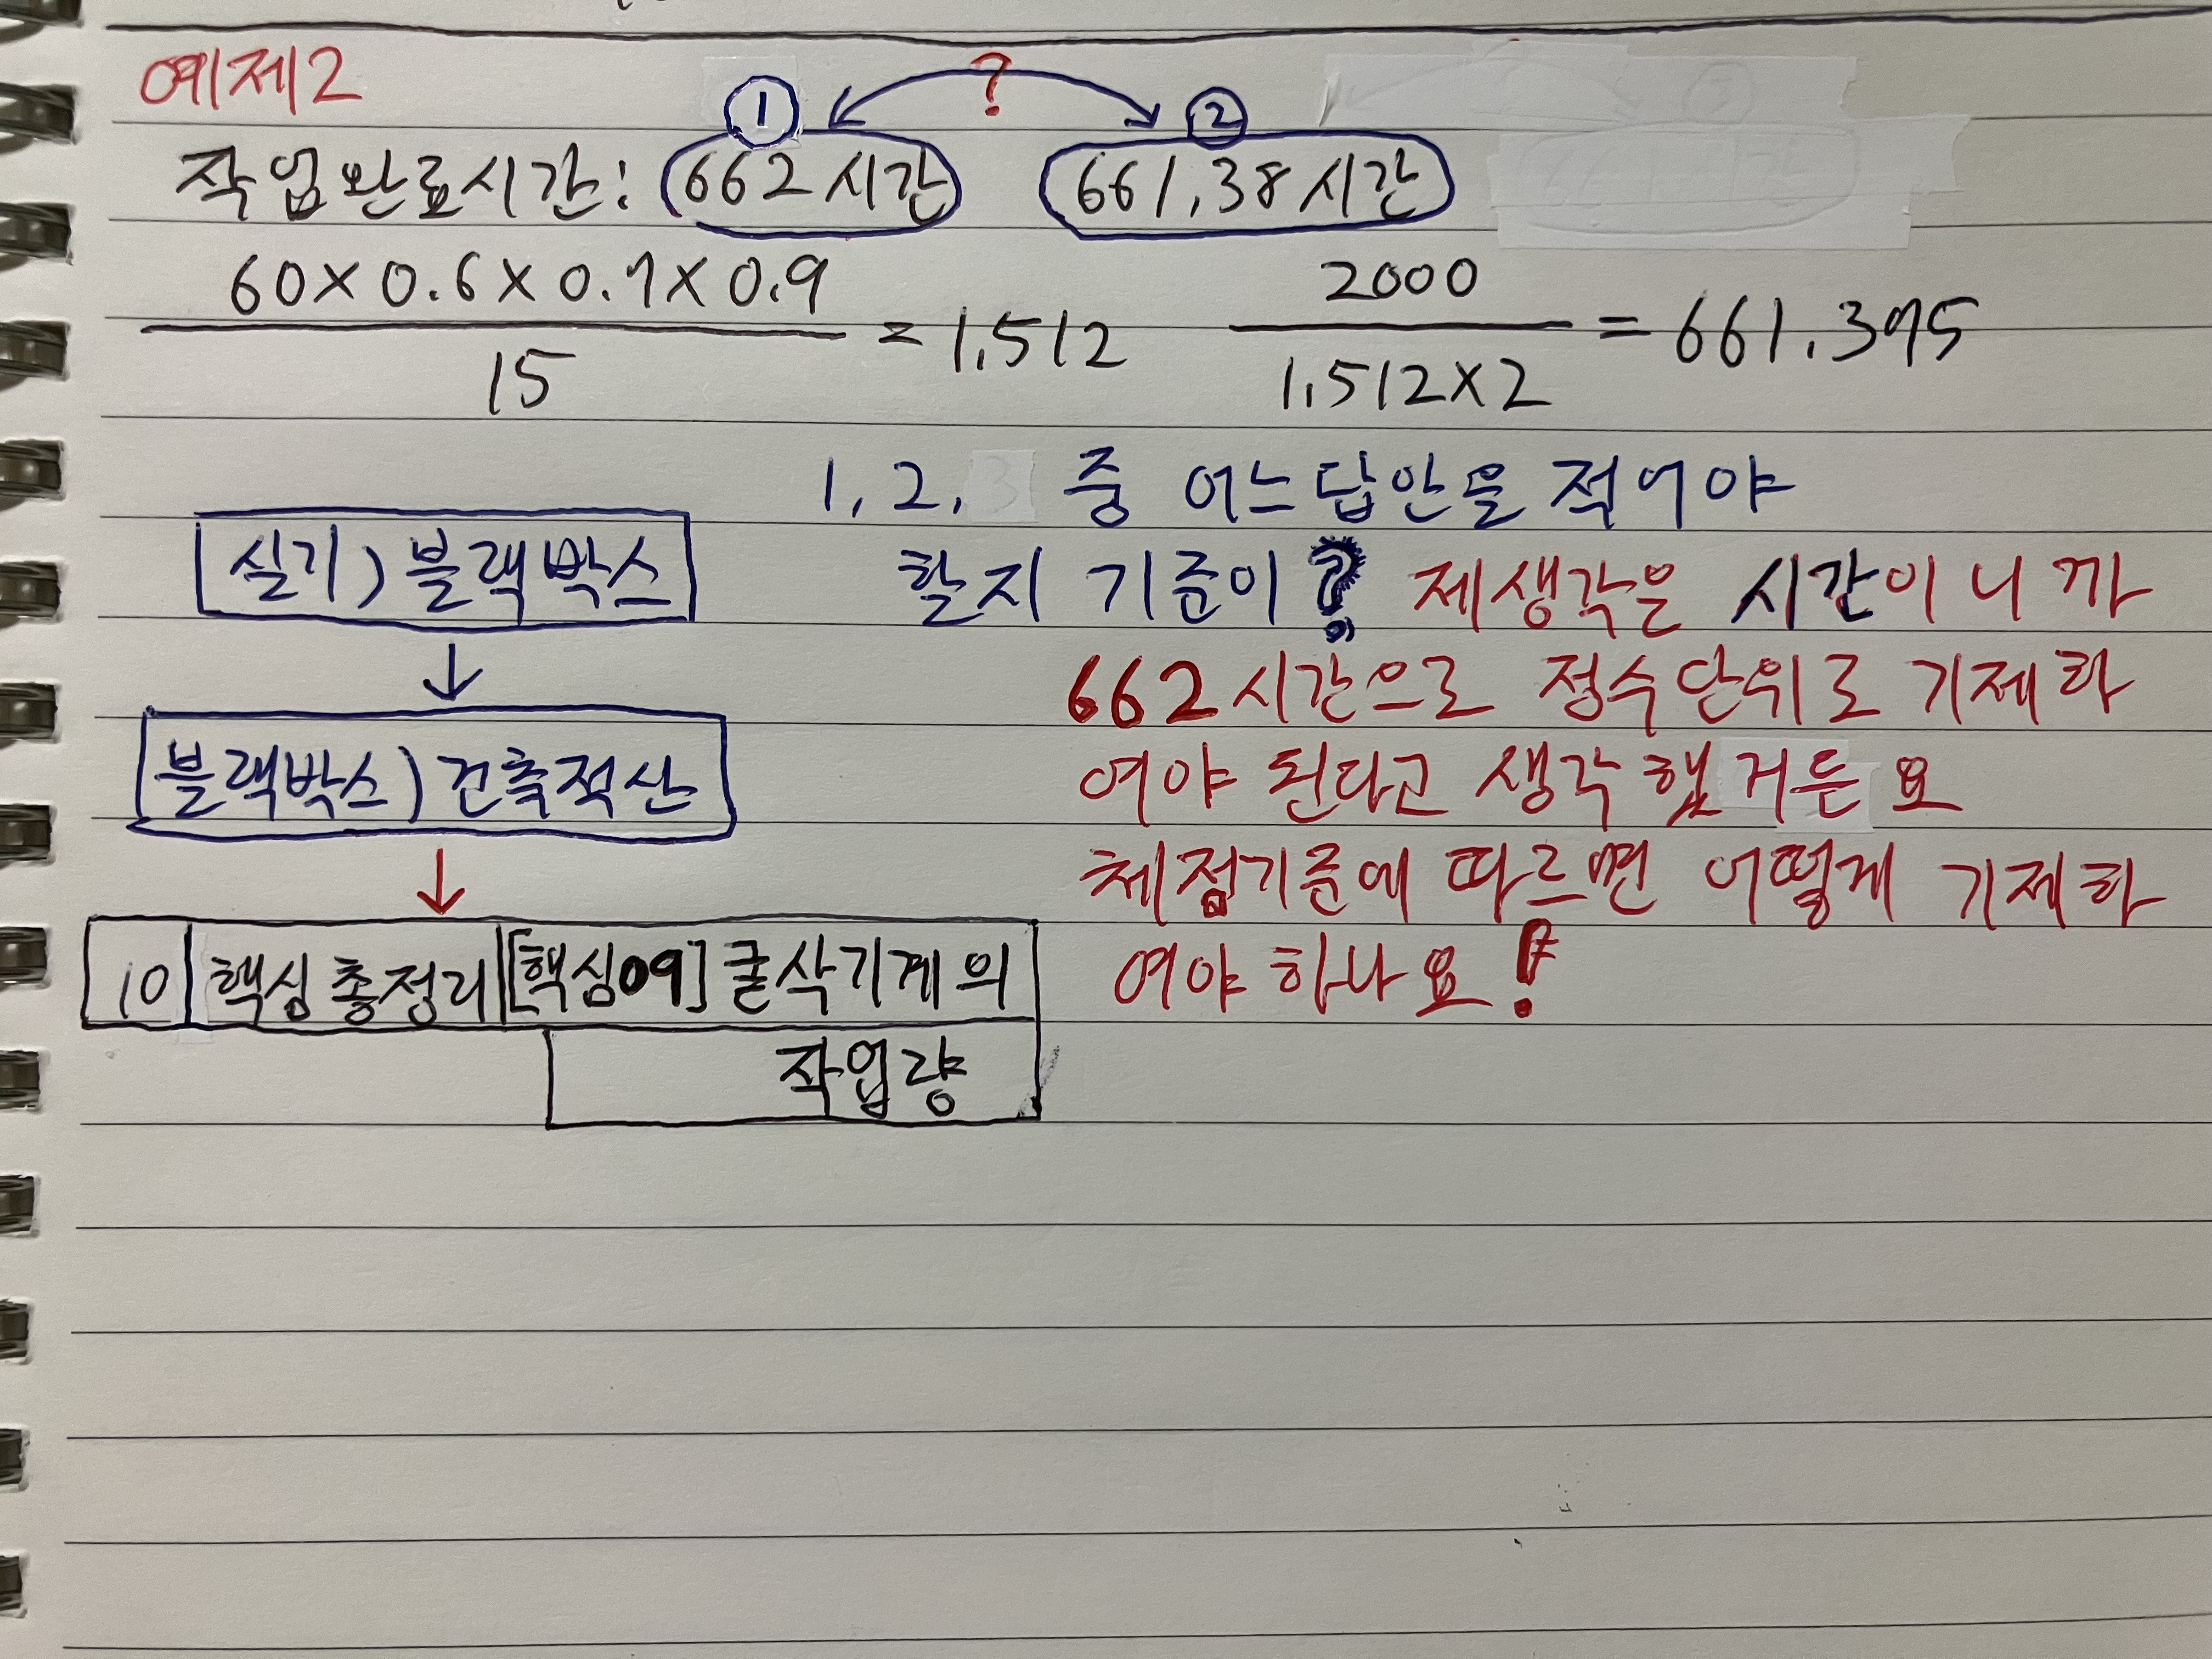 예제2
? ① ②
작업완료시간: 662시간 661.38시간
60×0.6×0.7×0.9 / 15 = 1.512 2000 / 1.512×2 = 661.375
1, 2, 중 어느답안을 적어야
할지 기준이? 제생각은 시간이니까
662시간으로 정수단위로 기제하
여야 된다고 생각했거든요
체점기준에 따르면 어떻게 기제하
여야 하나요?
실기) 블랙박스
↓
블랙박스) 건축적산
↓
10 핵심총정리 [핵심09] 굴삭기계의
작업량